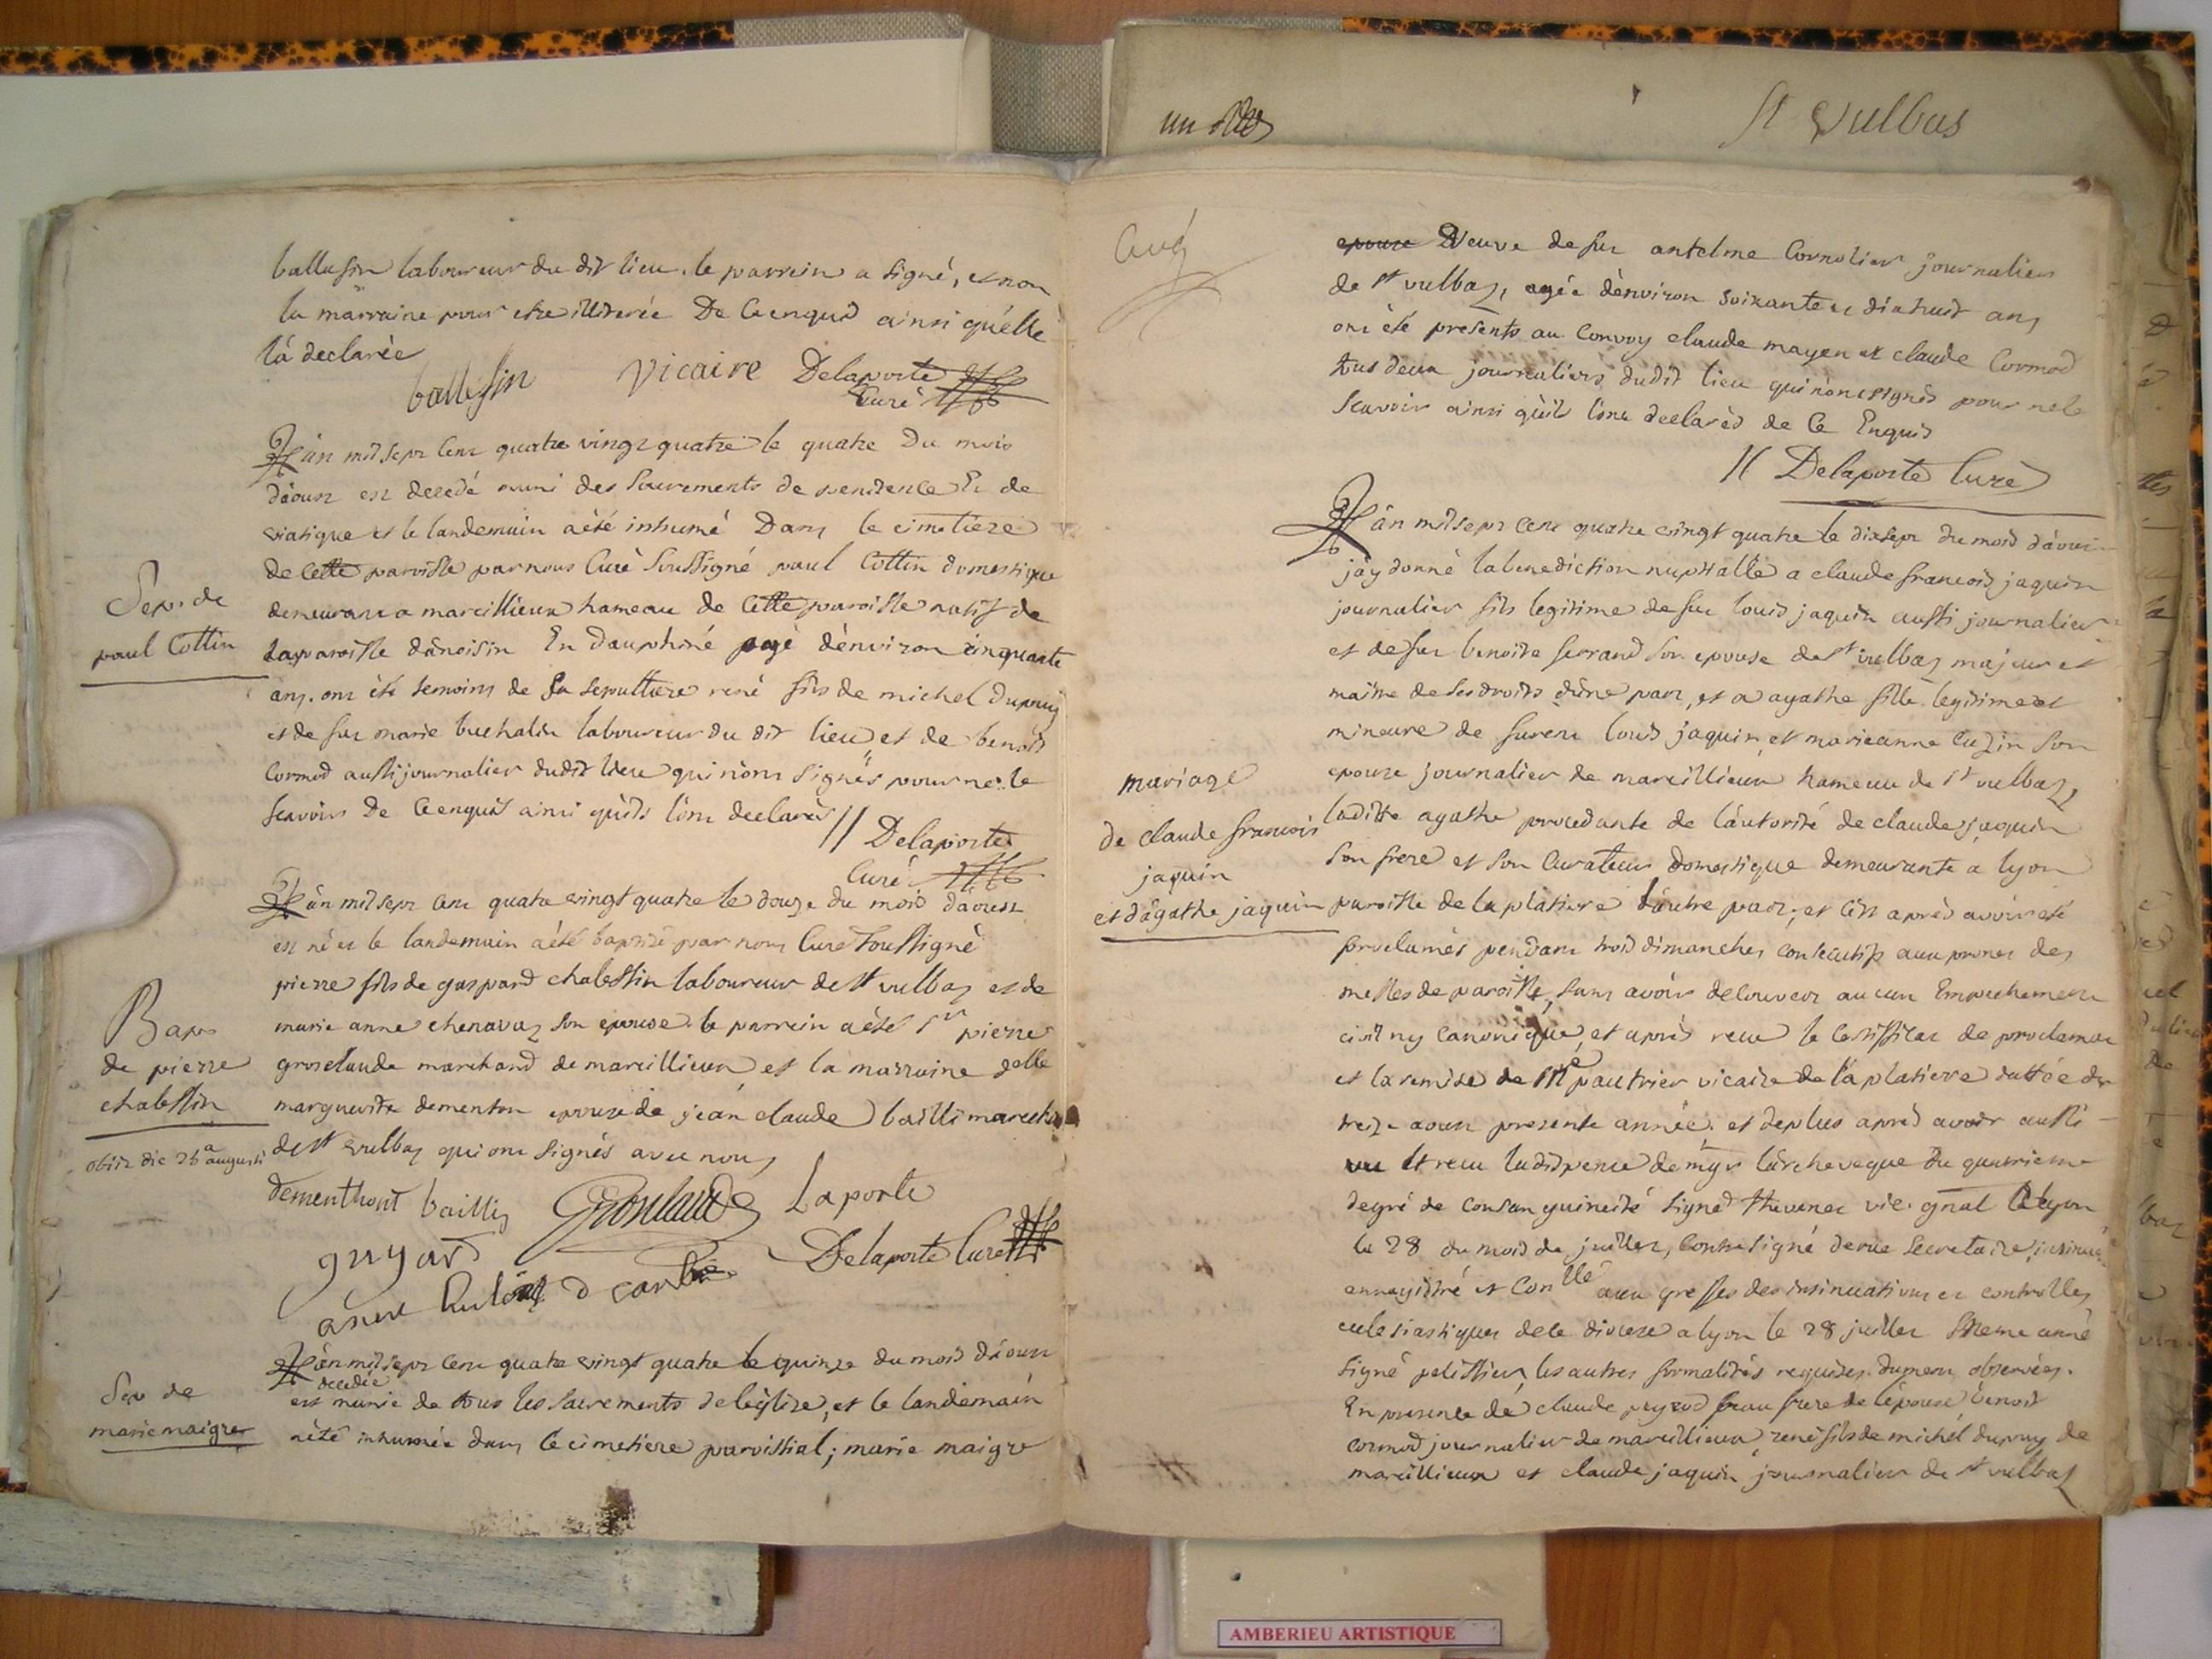 St Vulbas
ballefin laboureur du dit lieu. le parrein a signé, et non
la marraine pour etre illiterée De Ce enquis ainsi qu'elle
la declarée
ballefin Vicaire Delaporte
Curé
L'an mil sept Cent quatre vingt quatre le quatre Du mois
d'aoust est decedé muni des Sacrements de penitence Et de
viatique et le landemain a été inhumé Dans le cimetiere
de Cette paroisse par nous Curé Soussigné paul Cottin domestique
demeurant a marcillieux hameau de Cette paroisse natif de
la paroisse d'anoisin En Dauphiné agé d'environ cinquante
ans. ont été temoins de Sa Sepulture rené fils de michel Dupuy
et de fut marie buchalin laboureur du dit lieu et de benoit
Cormod aussi journalier dudit lieu qui n'ont Signés pour ne le
Scavoir de Ce enquis ainsi qu'ils l'ont declarés // Delaporte
Curé
Sep. de
paul Cottin
L'an mil sept Cent quatre vingt quatre le douze du mois d'aoust
est né et le landemain a été baptisé par nous Curé Soussigné
pierre fils de gaspard chabessin laboureur de St vulbas et de
marie anne chenavaz Son epouse. le parrein a été Sr pierre
grosclaude marchand de marcillieux et la marraine delle
marguerite dementon epouse de jean claude bailli
de St vulbas qui ont Signés avec nous
dementhont baillis Laporte
guyard Delaporte Curé
Bap.
de pierre
chabessin
obiit die 26a augusti
L'an mil sept Cent quatre vingt quatre le quinze du mois d'aoust
decedée
est munie de tous les Sacrements de l'eglise, et le landemain
a été inhumée dans le cimetiere paroissial; marie maigre
Sep. de
marie maigre
epouse Veuve de fut antelme Cornolier journalier
de St vulbas, agée d'environ Soixante et dix huit ans
ont été presents au Convoy claude mayen et claude Cormod
tous deux journaliers dudit lieu qui n'ont signés pour ne le
Scavoir ainsi qu'ils l'ont declarés de Ce Enquis
// Delaporte Curé
L'an mil sept Cent quatre vingt quatre le dix sept du mois d'aout
j'ay donné la benediction nuptialle a claude francois jaquin
journalier fils legitime de fut louis jaquin aussi journalier
et de fut benoite ferrand Son epouse de St vulbas majeur et
maitre de Ses droits d'une part, et a agathe fille legitime et
mineure de louis jaquin, et marieanne Cuzin Son
epouse journalier de marcillieux hameau de St vulbas,
laditte agathe procedante de l'autorité de claude jaquin
Son frere et Son Curateur Domestique demeurante a lyon
paroisse de la platiere d'autre part, et Ce apres avoir eté
proclamés pendant trois dimanches consecutifs aux prones des
messes de paroisse, Sans avoir decouvert aucun Empechement
civil ny canonique, et apres recu le Certifficat de proclamat
et la remise de Mre pautrier vicaire de la platiere dattée du
treize aout presente année, et deplus apres avoir aussi
vu Et recu la dispence de mgr l'archeveque Du quatrieme
degré de consanguinité Signé thevenet vic. gnal de lyon
le 28 du mois de juillet, Contresigné derue Secretaire, insinué
enregistré et Conllé aux greffes des insinuations et controlles
eclesiastiques de Ce diocese a lyon le 28 juillet Meme année
Signé pelissier, les autres formalités requises dument observées.
En presence de claude peyzod beau frere de l'epouse benoit
cormod journalier de marcillieux, rené fils de michel dupuy de
marcillieux et claude jaquin journalier de St vulbas
mariage
de claude francois
jaquin
et d'agathe jaquin
AMBERIEU ARTISTIQUE